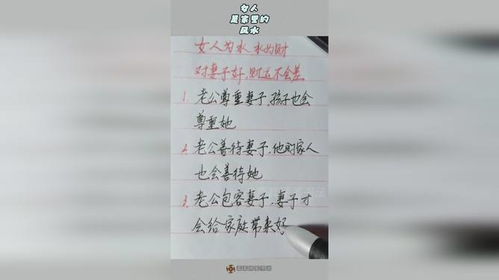 女人
是家里的
风水
女人为水 水为财
对妻子好,财运不会差
1. 老公尊重妻子,孩子也会
尊重她
2. 老公善待妻子,他的家人
也会善待她
3. 老公包容妻子,妻子才
会给家庭带来好